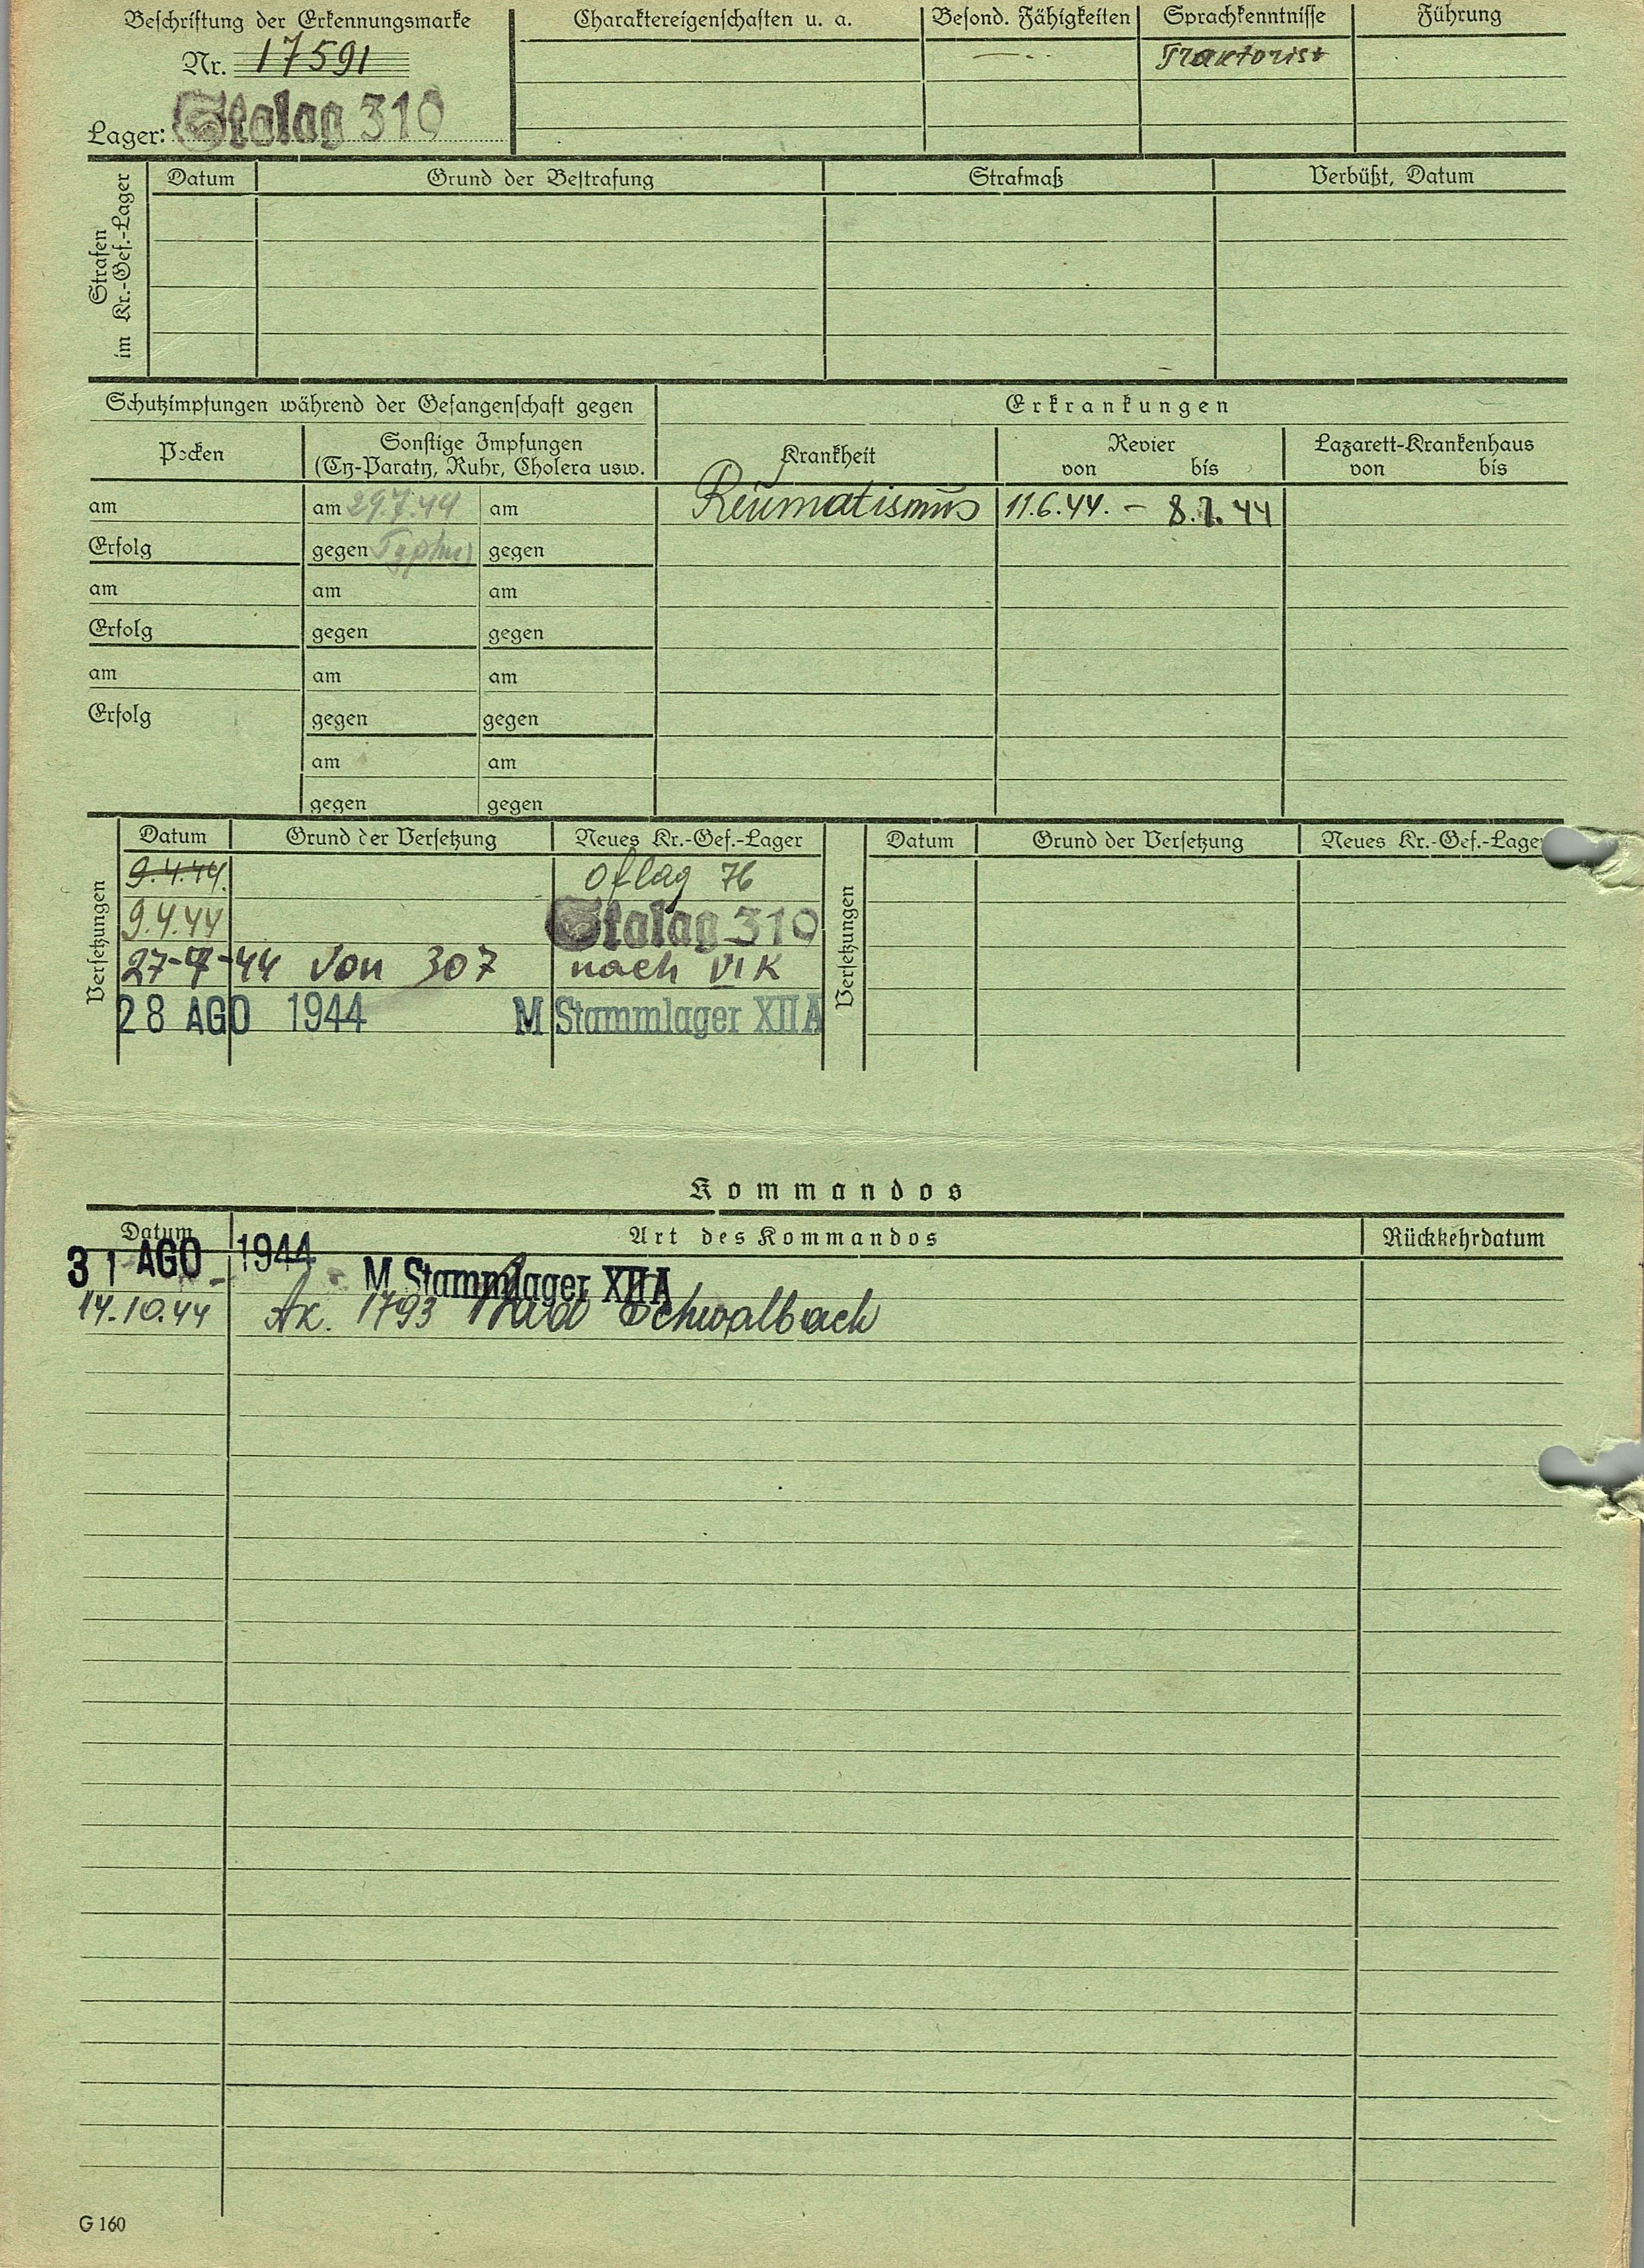 Beschriftung der Erkennungsmarke
Nr. 17591
Lager: Stalag 310
Charaktereigenschaften u. a.
Besond. Fähigkeiten
Sprachkenntnisse
Führung
Traktorist
Strafen
im Kr.-Gef.-Lager
Datum
Grund der Bestrafung
Strafmaß
Verbüßt, Datum
Schutzimpfungen während der Gefangenschaft gegen
Erkrankungen
Pocken
Sonstige Impfungen
(Ty-Paraty, Ruhr, Cholera usw.
Krankheit
Revier
von bis
Lazarett-Krankenhaus
von bis
am am 29.7.44 am Reumatismus 11.6.44. - 8.7.44
Erfolg gegen Typhus gegen
am am am
Erfolg gegen gegen
am am am
Erfolg gegen gegen
am am
gegen gegen
Versetzungen
Datum Grund der Versetzung Neues Kr.-Gef.-Lager
9.4.44. Oflag 76
9.4.44 Stalag 310
27-7-44 von 307 nach VI K
28 AGO 1944 M Stammlager XII A
Versetzungen
Datum Grund der Versetzung Neues Kr.-Gef.-Lager
Kommandos
Datum Art des Kommandos Rückkehrdatum
31 AGO 1944 M Stammlager XII A
14.10.44 Ak. 1793 Bad Schwalbach
G 160